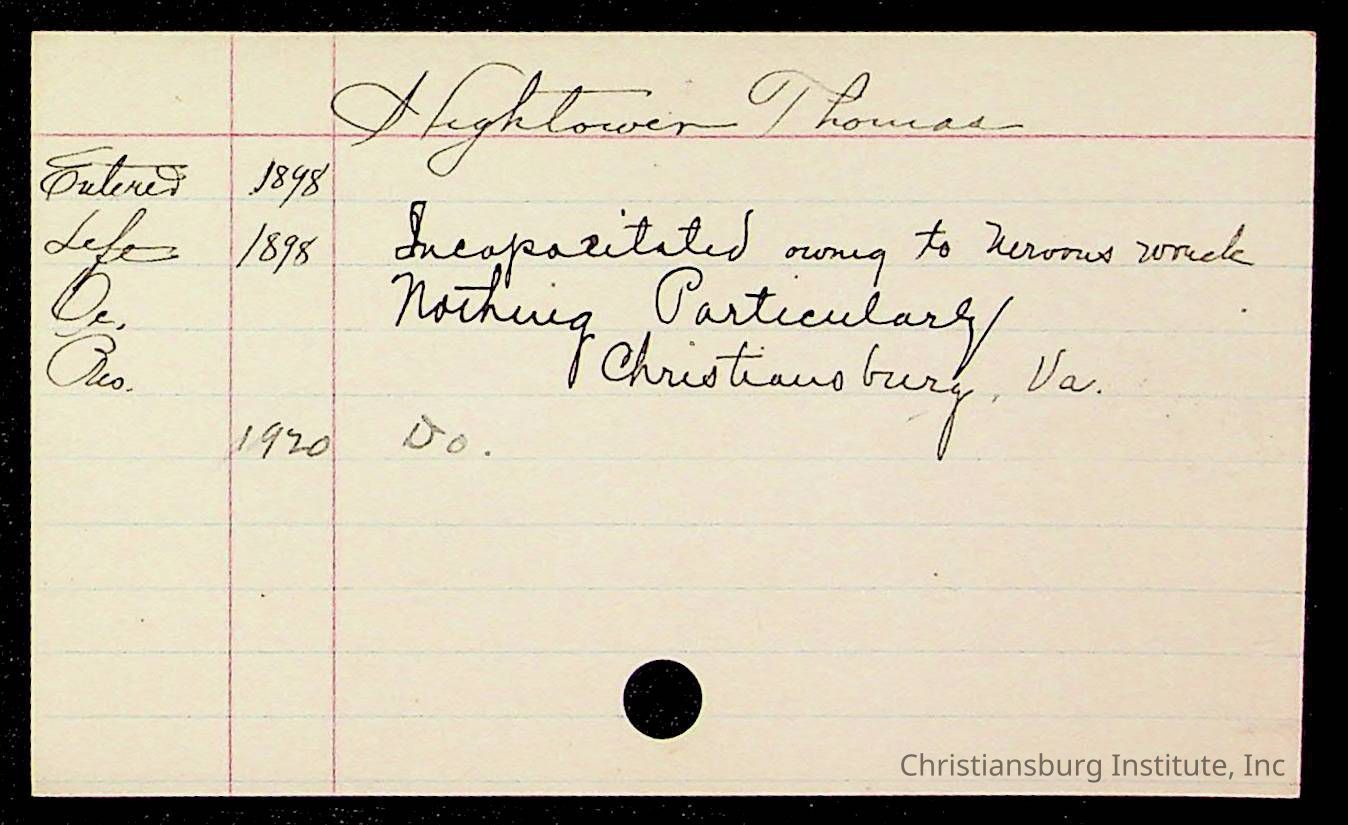 Hightower Thomas
Entered 1898
Left 1898 Incapacitated owing to nervous wreck
Oc. Nothing Particularly
Res. Christiansburg, Va.
1920 Do.
Christiansburg Institute, Inc